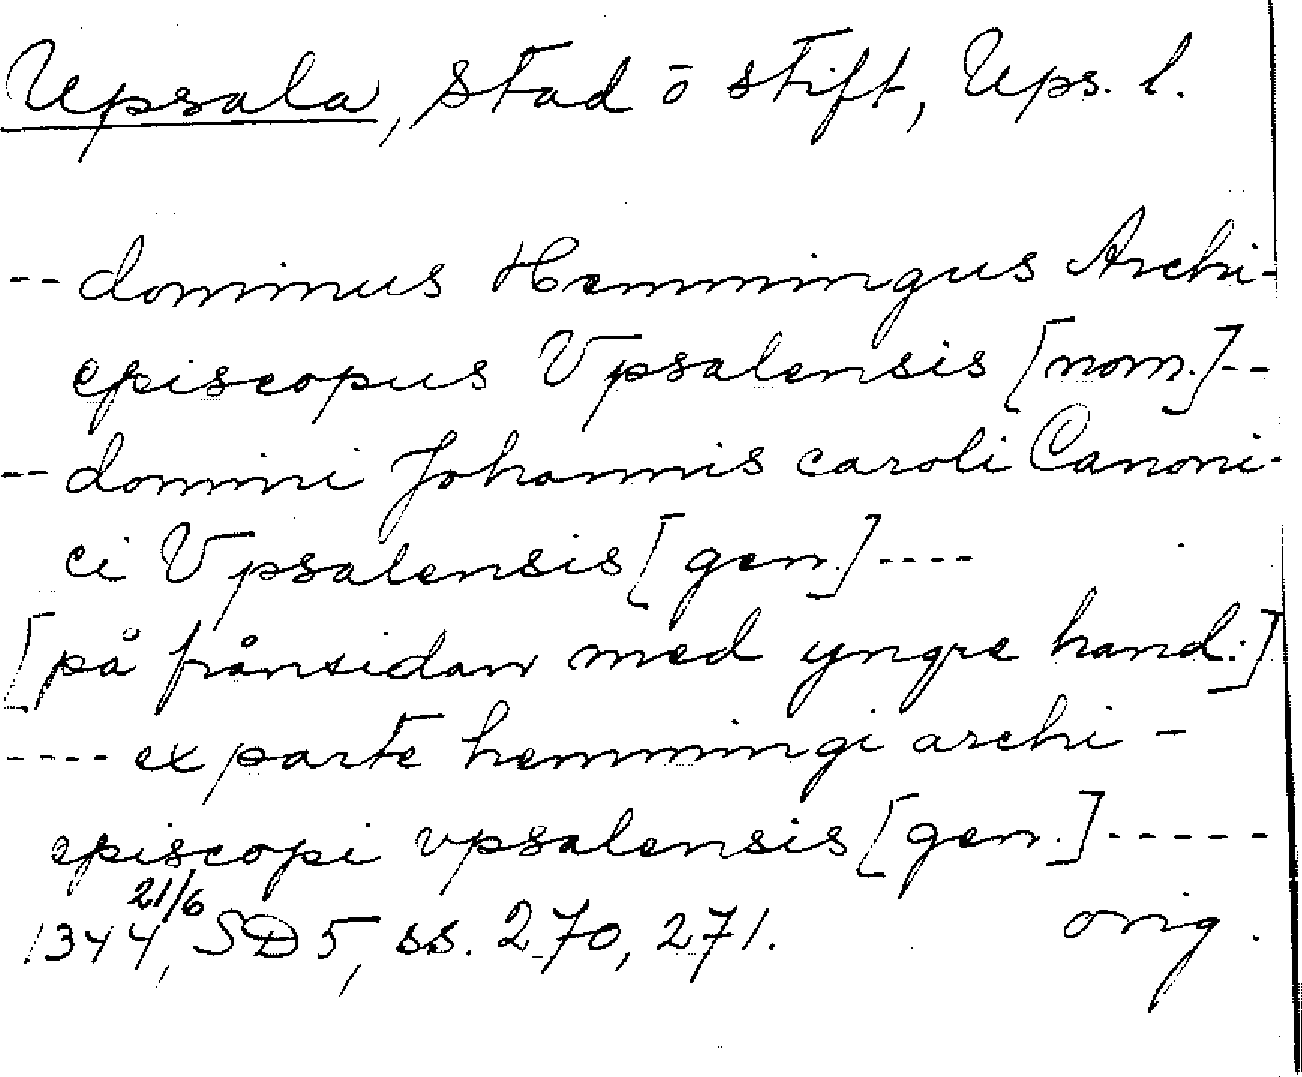 Upsala, stad ō stift, Ups. l.
-- dominus Hemmingus Archi-
episcopus Vpsalensis [nom.]--
-- domini Johannis caroli Canoni-
ci Vpsalensis [gen.]----
[på frånsidan med yngre hand:]
---- ex parte hemmingi archi-
episcopi vpsalensis [gen.]-----
1344 21/6, SD 5, ss. 270, 271. orig.